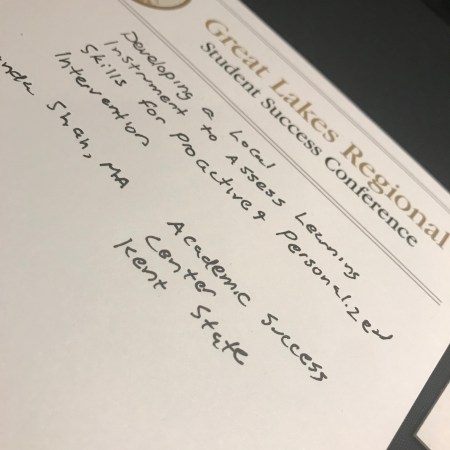 Great Lakes Regional
Student Success Conference
Developing a Local
Instrument to Assess Learning
Skills for Proactive & Personalized
Intervention
Shah, MA
Academic Success
Center
Kent State